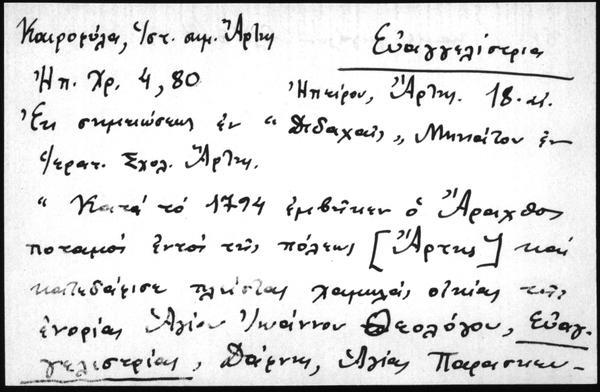 Καιροφύλα, Ἱστ. σημ. Ἄρτης
Εὐαγγελίστρια
Ἠπ. Χρ. 4, 80
Ἠπείρου, Ἄρτης. 18. αἰ.
Ἐκ σημειώσεως ἐν “ Διδαχαῖς „ Μηνιάτου ἐν
Ἱερατ. Σχολ. Ἄρτης.
“ Κατά τό 1794 ἐμβῆκεν ὁ Ἄραχθος
ποταμός ἐντός τῆς πόλεως [Ἄρτης] καί
κατεδάφισε πλείστας χαμηλάς οἰκίας τῆς
ἐνορίας Ἁγίου Ἰωάννου Θεολόγου, Εὐαγ-
γελιστρίας, Δάφνης, Ἁγίας Παρασκευ-